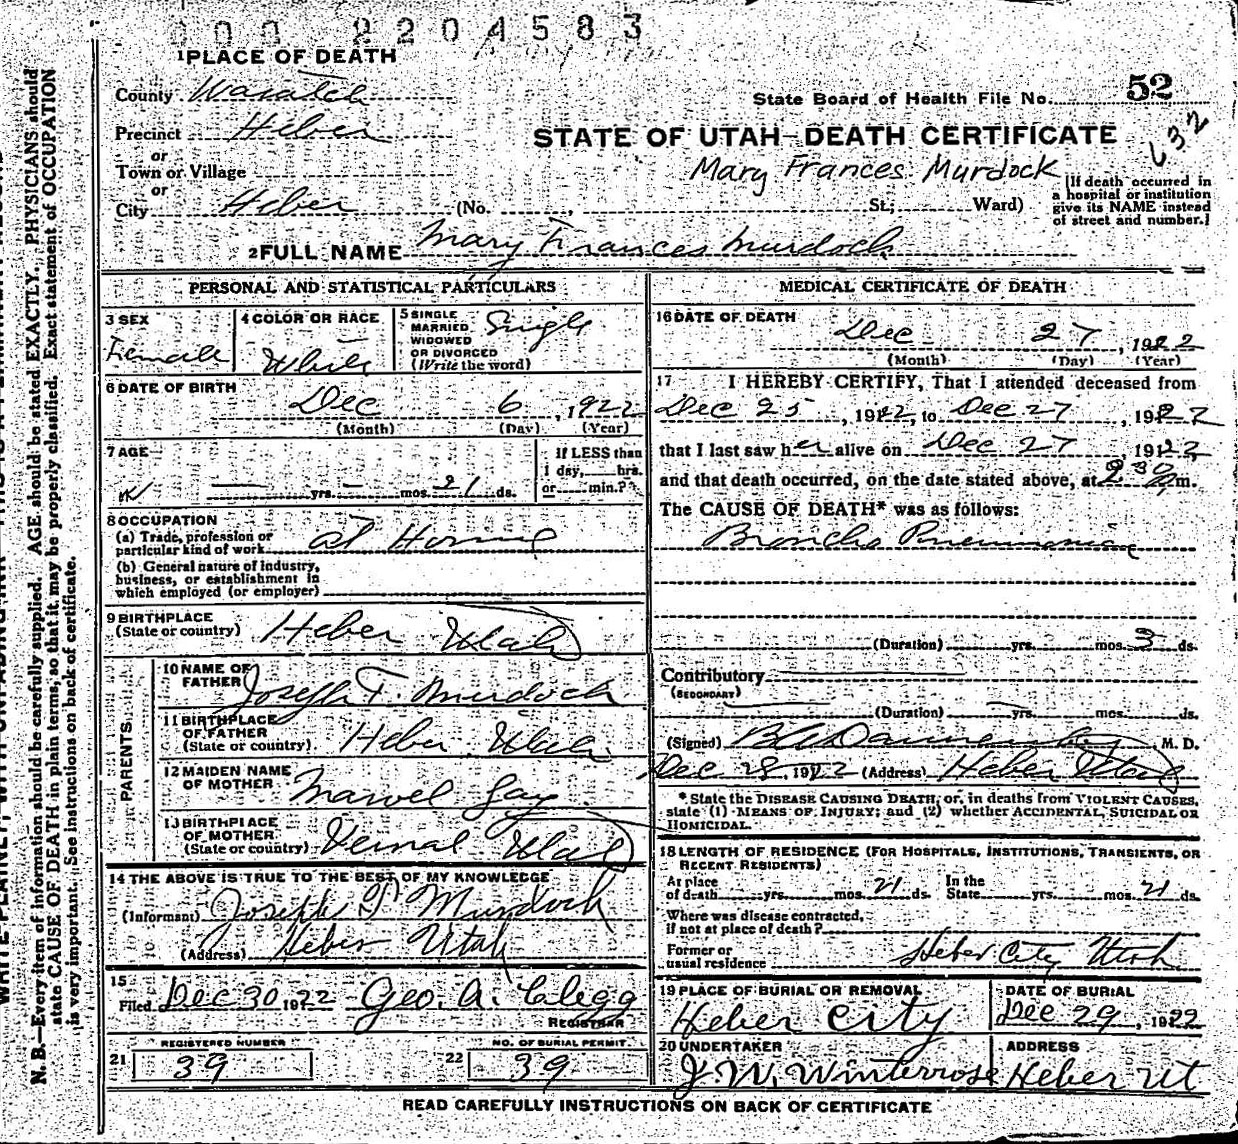 000 2204583
1 PLACE OF DEATH
County Wasatch
State Board of Health File No. 52
Precinct Heber
STATE OF UTAH—DEATH CERTIFICATE
132
or
Town or Village
Mary Frances Murdock
or
City Heber (No. , St.; Ward)
[If death occurred in
a hospital or institution
give its NAME instead
of street and number.]
2 FULL NAME Mary Frances Murdock
PERSONAL AND STATISTICAL PARTICULARS
3 SEX
Female
4 COLOR OR RACE
White
5 SINGLE
MARRIED
WIDOWED
OR DIVORCED
(Write the word)
Single
6 DATE OF BIRTH
Dec 6, 1922
(Month) (Day) (Year)
7 AGE
— yrs. — mos. 21 ds.
If LESS than
1 day, hrs.
or min.?
8 OCCUPATION
(a) Trade, profession or
particular kind of work at Home
(b) General nature of industry,
business, or establishment in
which employed (or employer)
9 BIRTHPLACE
(State or country) Heber Utah
PARENTS
10 NAME OF
FATHER Joseph T. Murdock
11 BIRTHPLACE
OF FATHER
(State or country) Heber Utah
12 MAIDEN NAME
OF MOTHER Marvel Gay
13 BIRTHPLACE
OF MOTHER
(State or country) Vernal Utah
14 THE ABOVE IS TRUE TO THE BEST OF MY KNOWLEDGE
(Informant) Joseph T Murdock
(Address) Heber Utah
15
Filed Dec 30 1922 Geo. A. Clegg
REGISTRAR
REGISTERED NUMBER
21 39
NO. OF BURIAL PERMIT
22 39
MEDICAL CERTIFICATE OF DEATH
16 DATE OF DEATH
Dec 27, 1922
(Month) (Day) (Year)
17 I HEREBY CERTIFY, That I attended deceased from
Dec 25, 1922, to Dec 27, 1922
that I last saw her alive on Dec 27, 1922
and that death occurred, on the date stated above, at 2 30 m.
The CAUSE OF DEATH* was as follows:
Broncho Pneumonia
(Duration) yrs. mos. 3 ds.
Contributory
(SECONDARY)
(Duration) yrs. mos. ds.
(Signed) M. D.
Dec 28, 1922 (Address) Heber Utah
* State the DISEASE CAUSING DEATH, or, in deaths from VIOLENT CAUSES,
state (1) MEANS OF INJURY; and (2) whether ACCIDENTAL, SUICIDAL OR
HOMICIDAL.
18 LENGTH OF RESIDENCE (FOR HOSPITALS, INSTITUTIONS, TRANSIENTS, OR
RECENT RESIDENTS)
At place
of death yrs. mos. 21 ds. In the
State yrs. mos. 21 ds.
Where was disease contracted,
if not at place of death?
Former or
usual residence Heber City Utah
19 PLACE OF BURIAL OR REMOVAL
Heber City
DATE OF BURIAL
Dec 29, 1922
20 UNDERTAKER
J. W. Winterrose
ADDRESS
Heber Ut
READ CAREFULLY INSTRUCTIONS ON BACK OF CERTIFICATE
N. B.—Every item of information should be carefully supplied. AGE should be stated EXACTLY. PHYSICIANS should
state CAUSE OF DEATH in plain terms, so that it may be properly classified. Exact statement of OCCUPATION
is very important. See instructions on back of certificate.